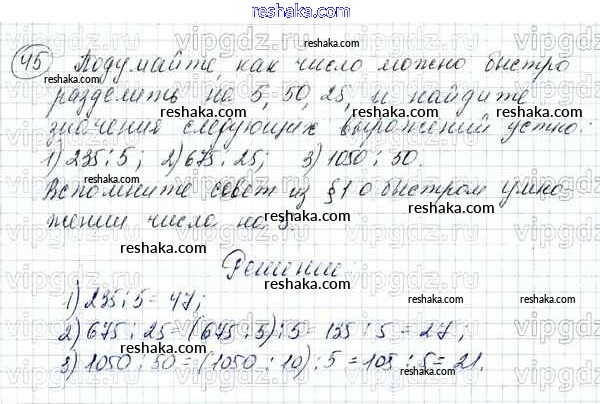 reshaka.com
45 Подумайте, как число можно быстро
разделить на 5, 50, 25, и найдите
значения следующих выражений устно:
1) 235 : 5; 2) 675 : 25; 3) 1050 : 50.
Вспомните совет из § 1 о быстром умно-
жении числа на 5.
Решение
1) 235 : 5 = 47;
2) 675 : 25 = (675 : 5) : 5 = 135 : 5 = 27;
3) 1050 : 50 = (1050 : 10) : 5 = 105 : 5 = 21.
reshaka.com